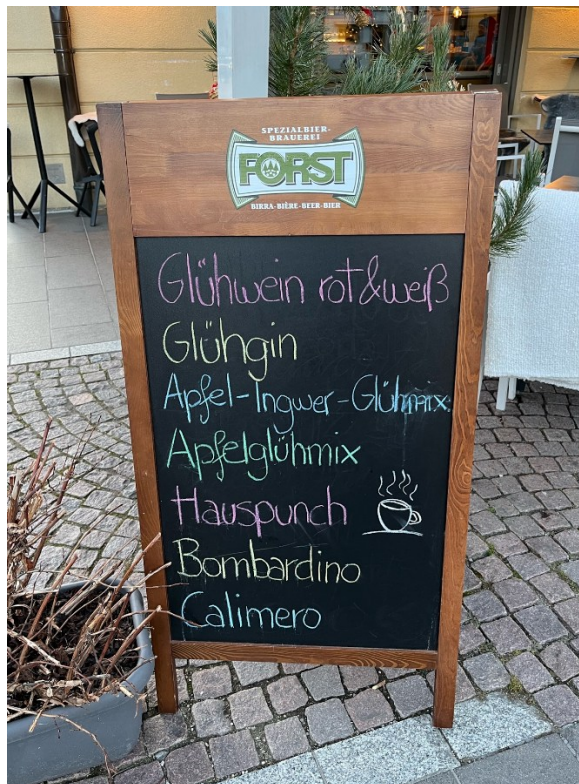 SPEZIALBIER-
BRAUEREI
FORST
BIRRA-BIÈRE-BEER-BIER
Glühwein rot&weiß
Glühgin
Apfel-Ingwer-Glühmix
Apfelglühmix
Hauspunch
Bombardino
Calimero